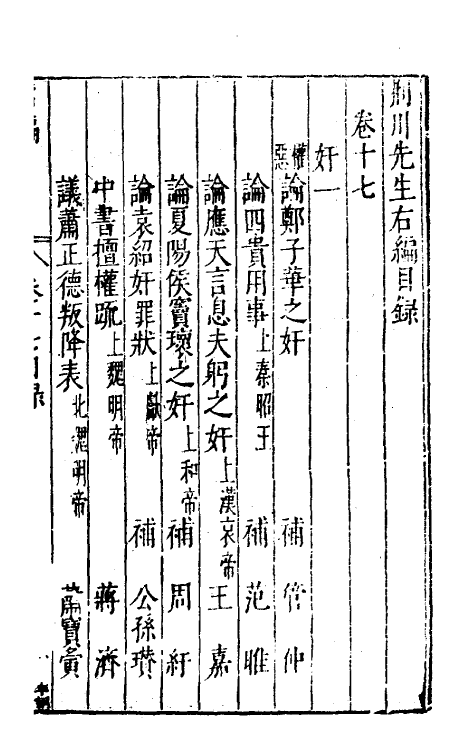 荆川先生右編目録
卷十七
奸一
權惡 論鄭子華之奸 補 管仲
論四貴用事 上秦昭王 補 范雎
論應天言息夫躬之奸 上漢哀帝 王嘉
論夏陽侯竇瓌之奸 上和帝 補 周紆
論袁紹奸罪狀 上獻帝 補 公孫瓚
中書擅權疏 上魏明帝 蔣濟
議蕭正德叛降表 北魏明帝 蕭寶寅
卷十七目録